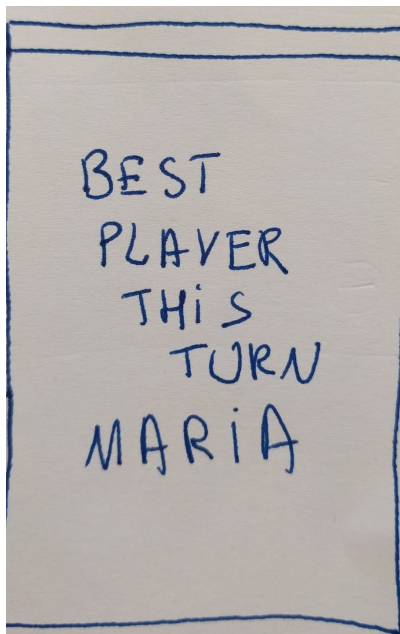 BEST
PLAYER
THiS
TURN
MARiA